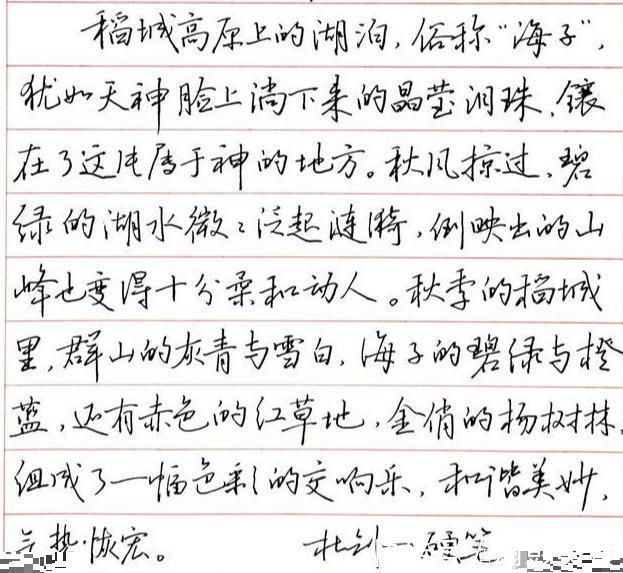 稻城高原上的湖泊，俗称“海子”，
犹如天神脸上淌下来的晶莹泪珠，镶
在了这片属于神的地方。秋风掠过，碧
绿的湖水微々泛起涟漪，倒映出的山
峰也变得十分柔和动人。秋季的稻城
里，群山的灰青与雪白，海子的碧绿与橙
蓝，还有赤色的红草地，金俏的杨树林，
组成了一幅色彩的交响乐，和谐美妙，
气势恢宏。